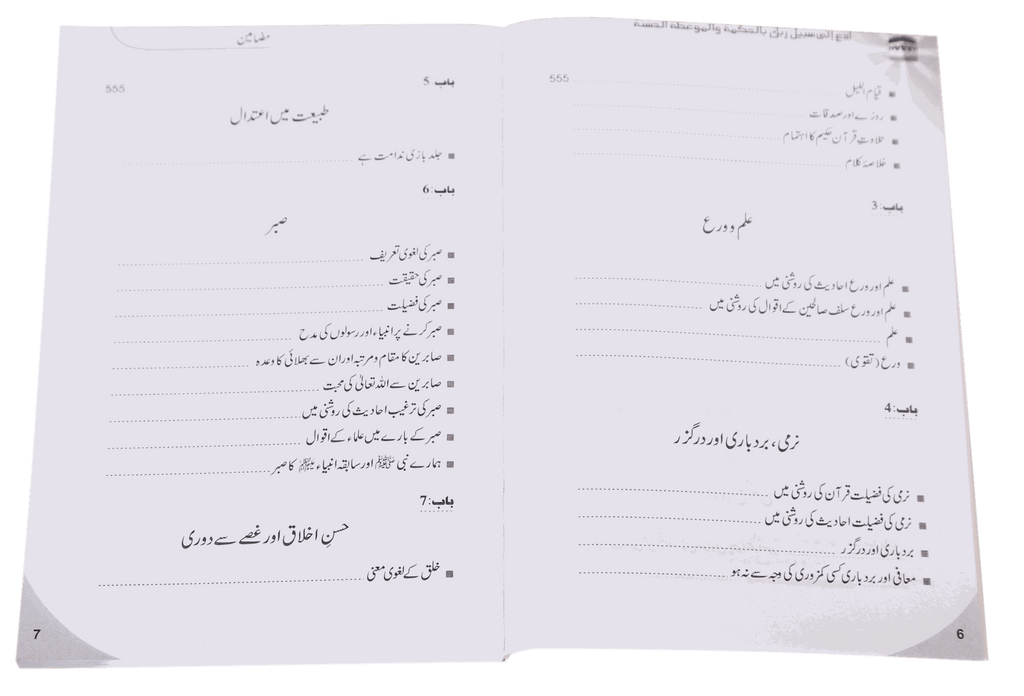 ادع إلى سبيل ربك بالحكمة والموعظة الحسنة
قیام اللیل 555
روزے اور صدقات
تلاوتِ قرآن حکیم کا اہتمام
خلاصۂ کلام
باب:3
علم و ورع
علم اور ورع احادیث کی روشنی میں
علم اور ورع سلف صالحین کے اقوال کی روشنی میں
علم
ورع (تقوی)
باب:4
نرمی، بردباری اور درگزر
نرمی کی فضیلت قرآن کی روشنی میں
نرمی کی فضیلت احادیث کی روشنی میں
بردباری اور درگزر
معافی اور بردباری کسی کمزوری کی وجہ سے نہ ہو
6
مضامین
باب:5
555
طبیعت میں اعتدال
جلد بازی ندامت ہے
باب:6
صبر
صبر کی لغوی تعریف
صبر کی حقیقت
صبر کی فضیلت
صبر کرنے پر انبیاء اور رسولوں کی مدح
صابرین کا مقام و مرتبہ اور ان سے بھلائی کا وعدہ
صابرین سے اللہ تعالیٰ کی محبت
صبر کی ترغیب احادیث کی روشنی میں
صبر کے بارے میں علماء کے اقوال
ہمارے نبی ﷺ اور سابقہ انبیاء کا صبر
باب:7
حسنِ اخلاق اور غصے سے دوری
خلق کے لغوی معنی
7